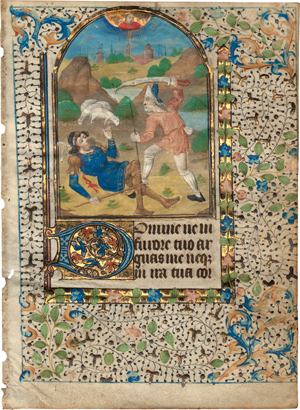 Domine ne in
furore tuo ar
guas me neq
in ira tua cor